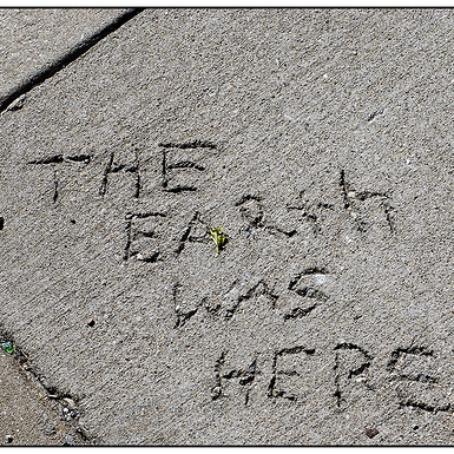 THE
EARth
WAS
HERE